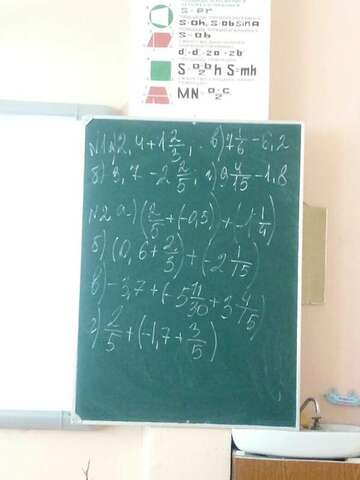 S = pr
S=ah, S=absinA
S=ab
d₁d₂=2a²+2b²
S=a+b/2 h S=mh
MN = a+c/2
№1 а) 2,4 + 1 2/3; в) 7 1/6 - 6,2
б) 3,7 - 2 2/5; г) 9 4/15 - 1,8
№2 а) (2/5 + (-0,5)) + (-1 1/4)
б) (0,6 + 2/3) + (-2 1/15)
в) -3,7 + (-5 11/30 + 3 4/5)
г) 2/5 + (-1,7 + 3/5)